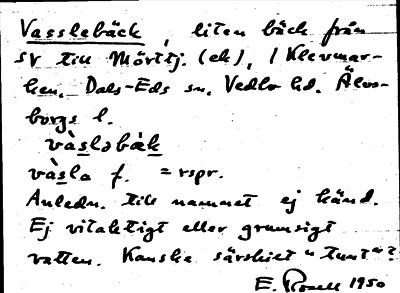 Vasslebäck, liten bäck från
SV till Mörttj. (ek), i Klevmar-
ken, Dals-Eds sn, Vedbo hd. Älvs-
borgs l.
vàsləbäk
vàsla f. = rspr.
Anledn. till namnet ej känd.
Ej vitaktigt eller grumsigt
vatten. Kanske särskilt "tunt"?
E. Rosell 1950